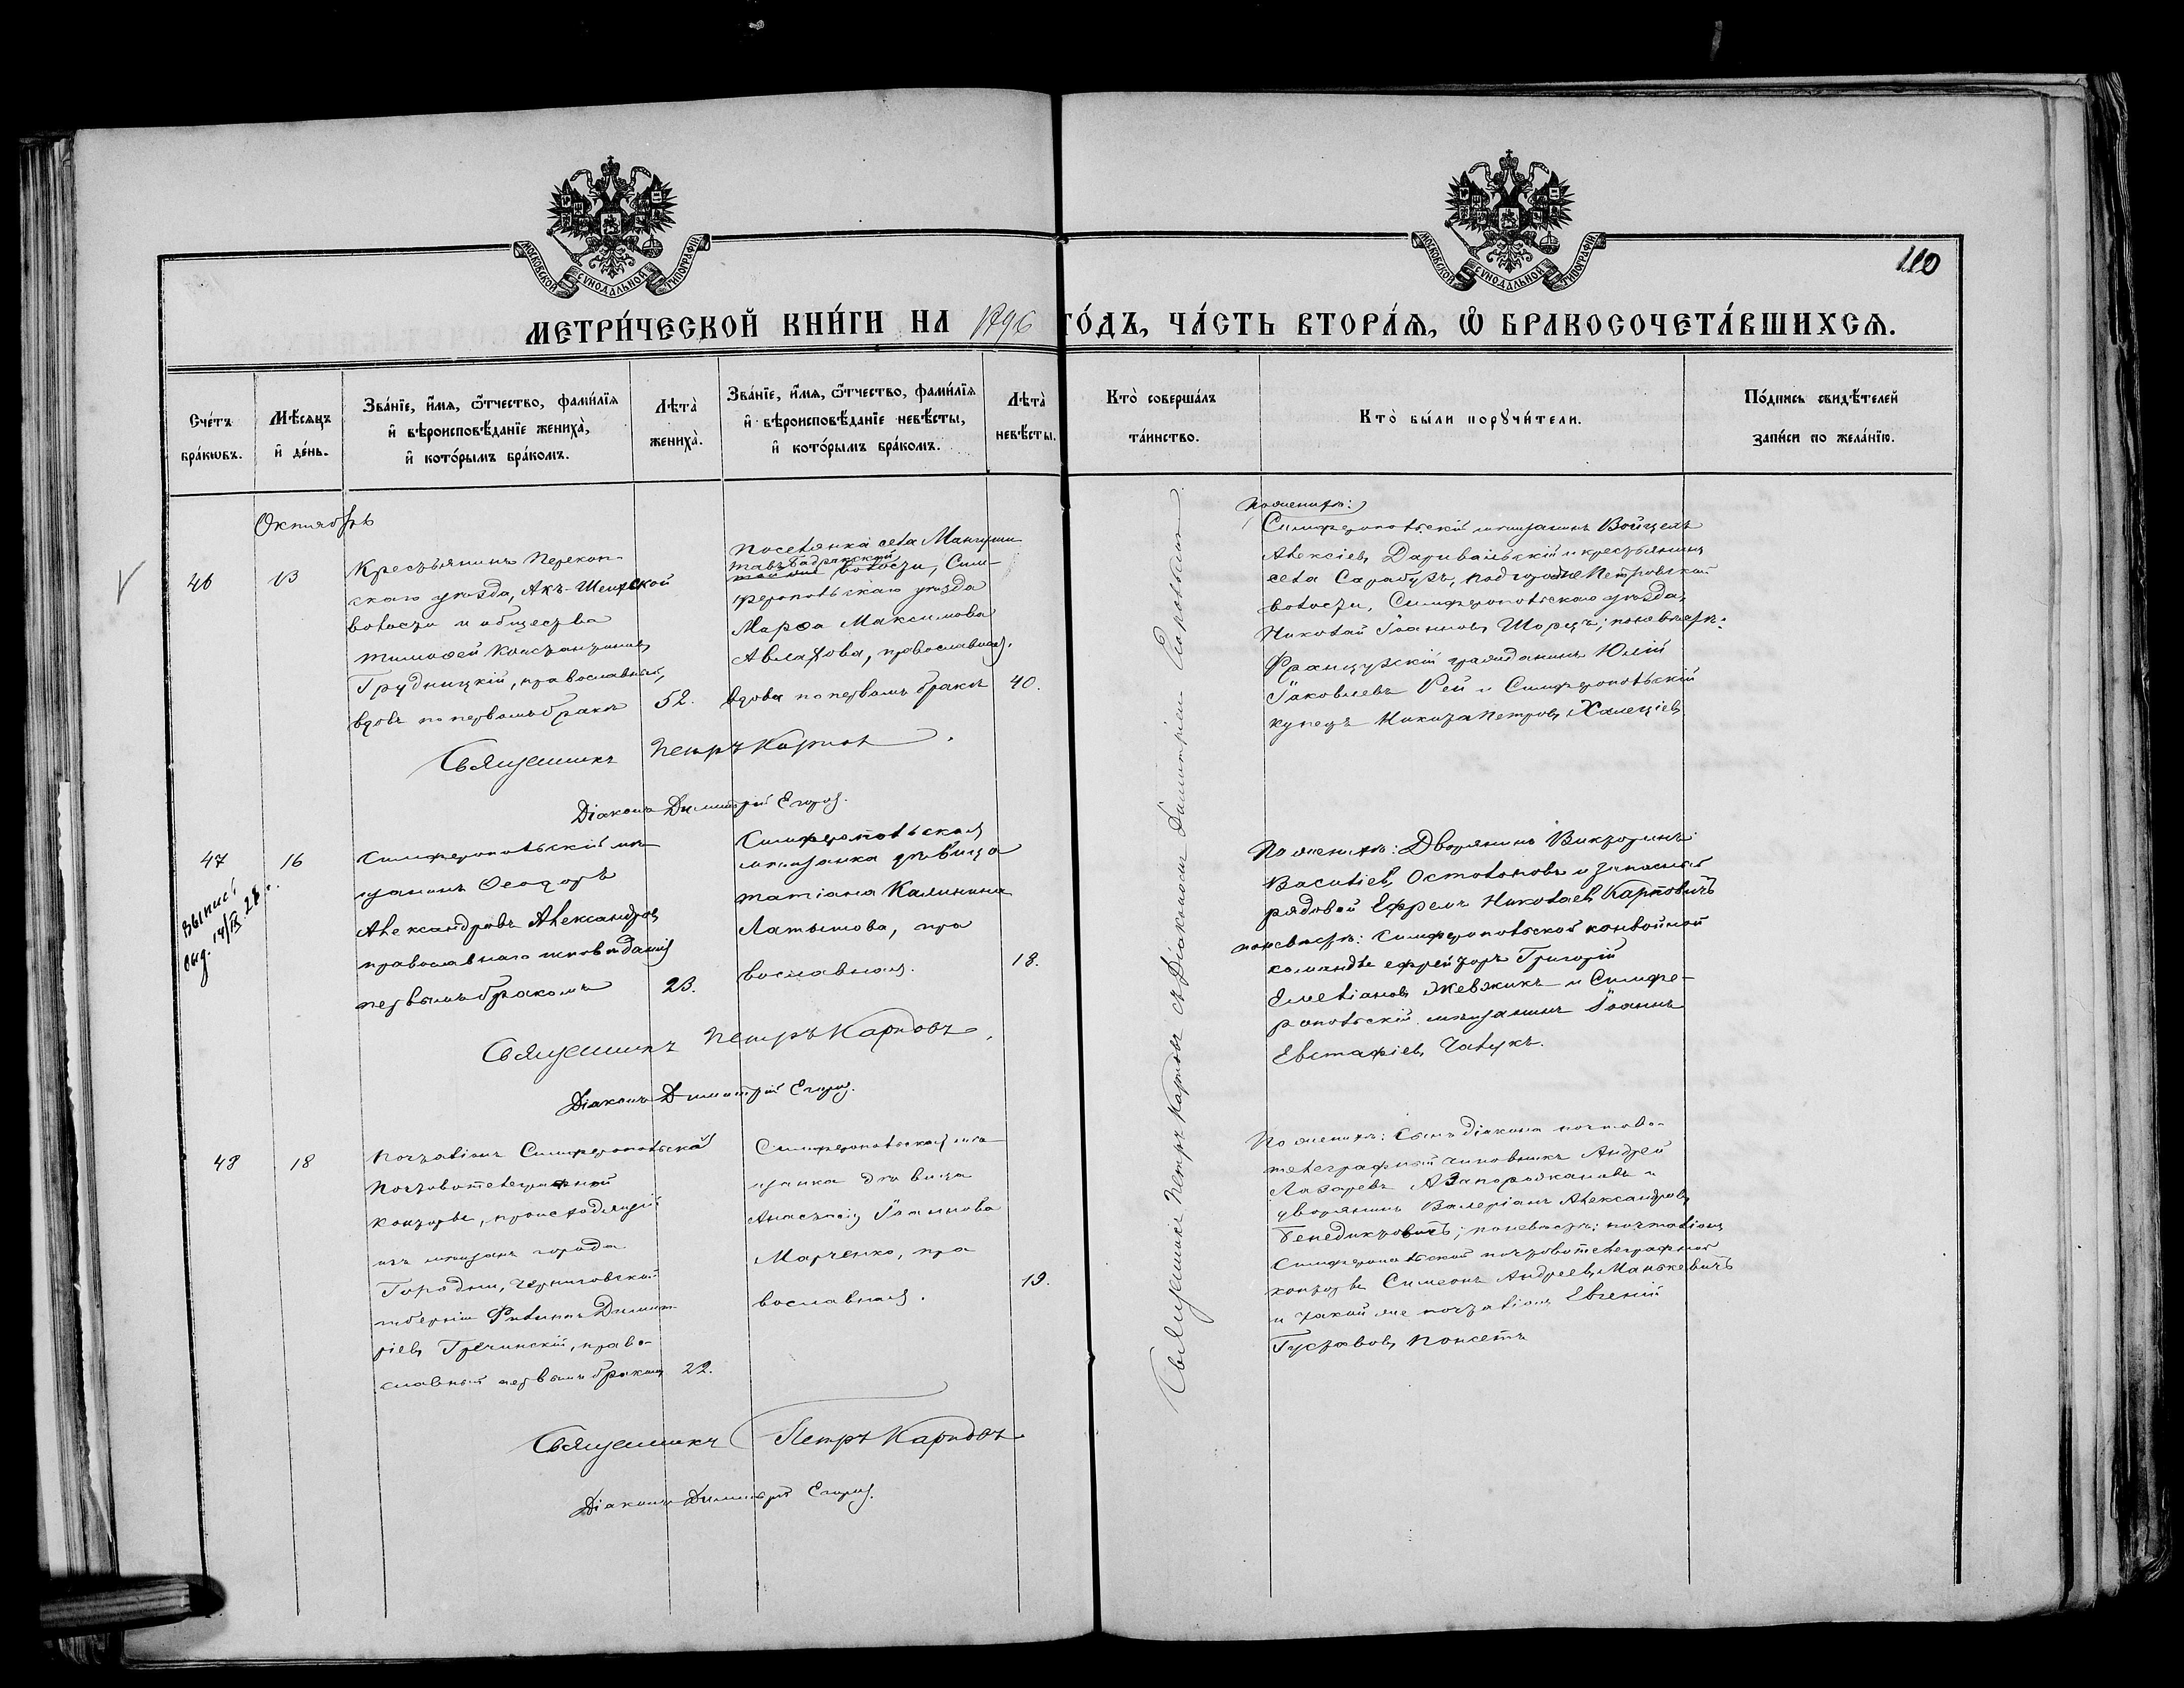 МОСКОВСКОЙ СУНОДАЛЬНОЙ ТИПОГРАФІИ
МОСКОВСКОЙ СУНОДАЛЬНОЙ ТИПОГРАФІИ
110
МЕТРИ́ЧЕСКОЙ КНИ́ГИ НА 1896 ГО́ДЪ, ЧА́СТЬ ВТОРА́Я, Ѡ БРАКОСОЧЕТА́ВШИХСЯ.
Сче́тъ бра́кѡвъ.
Мѣ́сяцъ и де́нь.
Зва́нїе, и́мя, ѻ́тчество, фами́лїя и вѣроисповѣ́данїе жениха̀, и кото́рымъ бра́комъ.
Лѣта̀ жениха̀.
Зва́нїе, и́мя, ѻ́тчество, фами́лїя и вѣроисповѣ́данїе невѣ́сты, и кото́рымъ бра́комъ.
Лѣта̀ невѣ́сты.
Кто̀ соверша́лъ та́инство.
Кто̀ бы́ли порꙋчи́тели.
По́дпись свидѣ́телей за́писи по жела́нїю.
Октябрь
46
13
Крестьянинъ Перекоп-
скаго уѣзда, Акъ-Шеихской
волости и общества
Тимофей Константиновъ
Грудницкій, православный,
вдовъ по первомъ бракѣ
52.
Поселянка села Мангуши
волости, Сим-
феропольскаго уѣзда
Марѳа Максимова
православная,
вдова по первомъ бракѣ
40.
Священникъ Петръ Карповъ.
Діаконъ Димитрій Егоровъ.
По женихѣ:
Симферопольскій мѣщанинъ
Алексіевъ и крестьянинъ
села Сарабузъ, Подгородне Петровской
волости, Симферопольскаго уѣзда,
Николай Іоанновъ по невѣстѣ:
Французскій гражданинъ Юлій
Іаковлевъ Рей и Симферопольскій
купецъ Никита Петровъ
47
16
выпись
выд. 14/IX 28 г.
Симферопольскій мѣ-
щанинъ Ѳеодоръ
Александровъ Александровъ
православнаго исповѣданія
первымъ бракомъ
23.
Симферопольская
мѣщанка дѣвица
Татіана Калинина
Латышова, пра
вославная.
18.
Священникъ Петръ Карповъ.
Діаконъ Димитрій Егоровъ.
По женихѣ: Дворянинъ Викторинъ
Василіевъ и запасный
рядовой Ефремъ Николаевъ Карповичъ
по невѣстѣ: Симферопольской конвойной
команды ефрейторъ Григорій
Емеліановъ и Симфе-
ропольскій мѣщанинъ Іоаннъ
Евстафіевъ
48
18
Почталіонъ Симферопольской
Почтовотелеграфной
конторы, происходящій
изъ мѣщанъ города
Городни, Черниговской
губерніи Филиппъ Димит
ріевъ Гречинскій, право-
славный первымъ бракомъ
22.
Симферопольская мѣ
щанка дѣвица
Анастасія Іоаннова
Марченко, пра
вославная.
19.
Священникъ Петръ Карповъ
Діаконъ Димитрій Егоровъ.
По женихѣ: Сынъ діакона почтово-
телеграфный чиновникъ Андрей
Лазаревъ и
дворянинъ Валеріанъ Александровъ
Бенедиктовичъ; по невѣстѣ: почталіонъ
Симферопольской почтовотелеграфной
конторы Симеонъ Андреевъ Манькевичъ
и такой же почталіонъ Евгеній
Густавовъ Понсетъ
Священникъ Петръ Карповъ съ Діакономъ Димитріемъ Егоровымъ